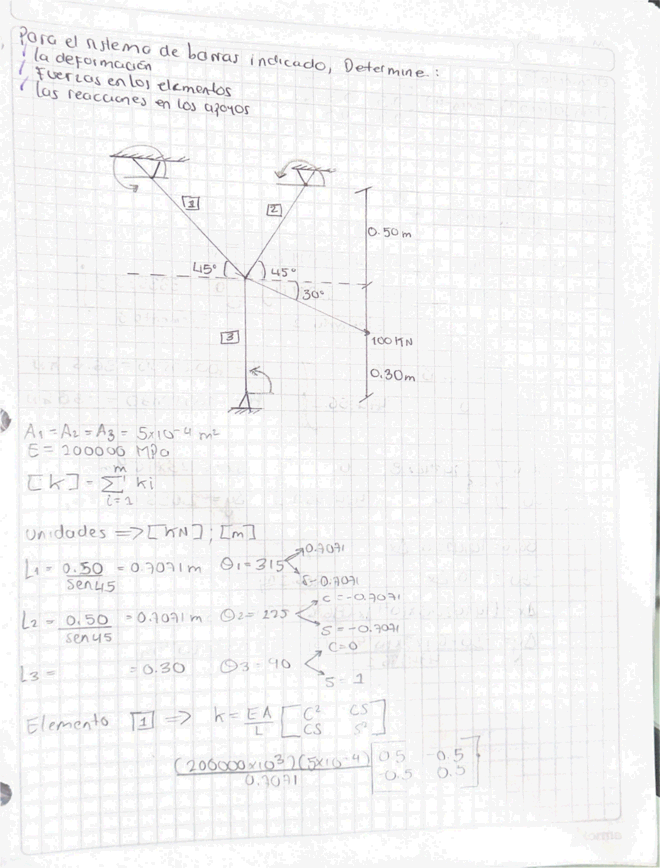 Para el sistema de barras indicado, Determine:
la deformación
Fuerzas en los elementos
las reacciones en los apoyos
1
2
0.50m
45°
45°
30°
3
100 KN
0.30m
A1 = A2 = A3 = 5x10-4 m2
E = 200000 MPa
[k] = m Σ i=1 ki
Unidades => [KN] ; [m]
L1 = 0.50 / sen45 = 0.7071m θ1 = 315 0.7071
s -0.7071
L2 = 0.50 / sen45 = 0.7071m θ2 = 225 c = -0.7071
s = -0.7071
L3 = = 0.30 θ3 = 90 c = 0
s = 1
Elemento 1 => k = EA / L [ C2 CS
CS S2 ]
(200000x103)(5x10-4) / 0.7071 [ 0.5 -0.5
-0.5 0.5 ]